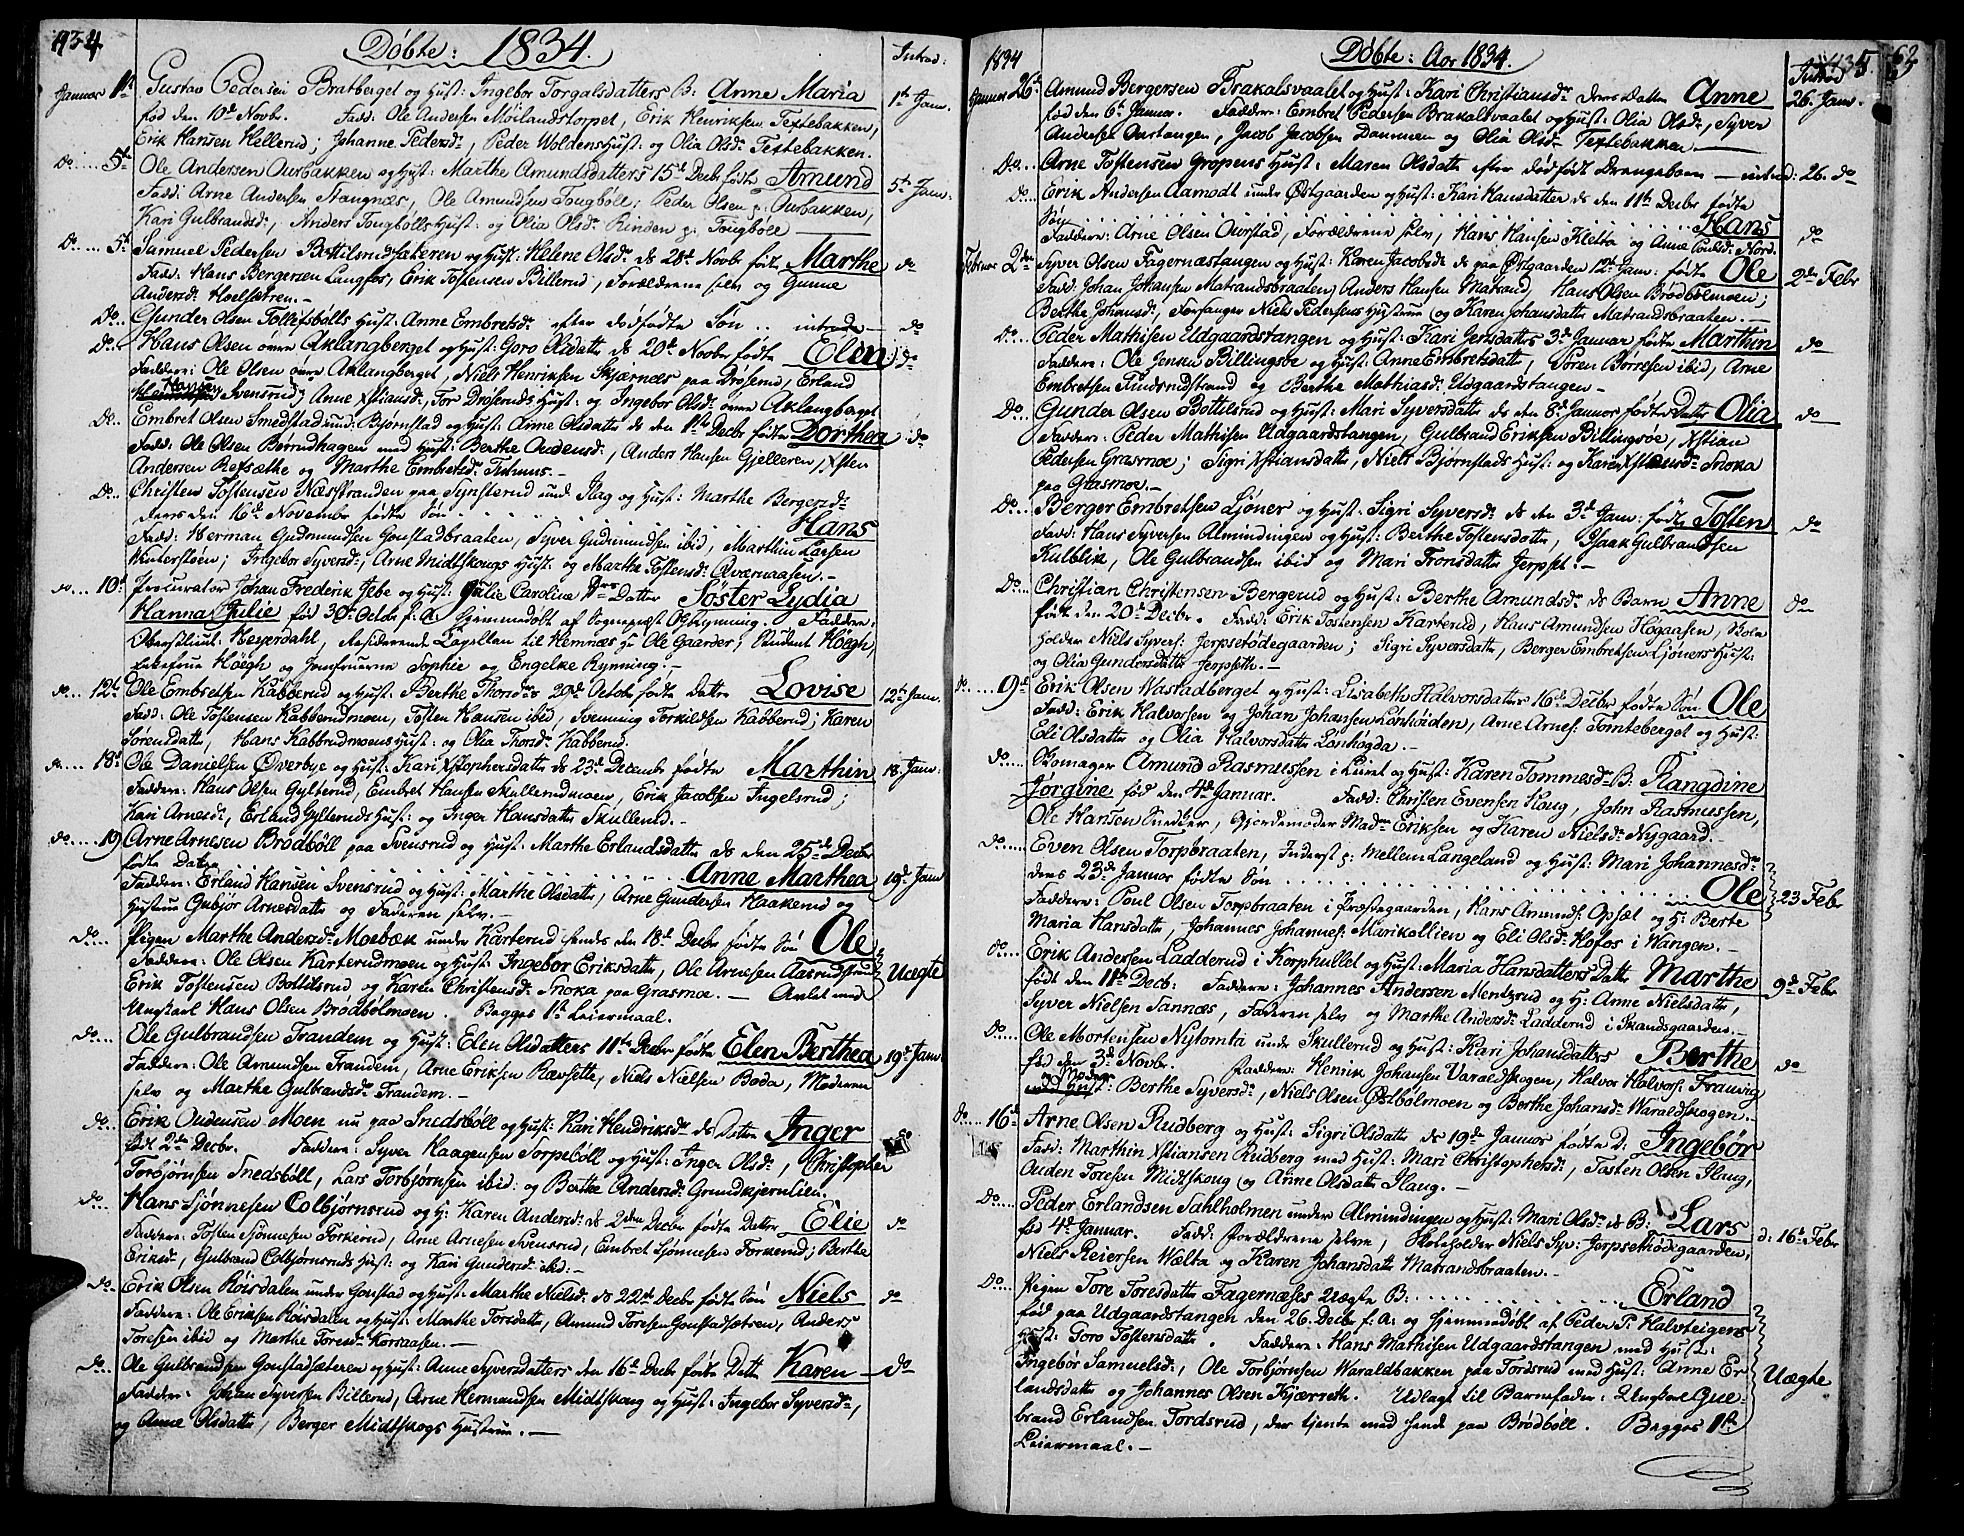 1834
Døbte: 1834.
Introd:
Januar 1st Gustav Pedersen Bratberget og Hust: Ingebor Torgalsdatters B: Anne Maria 1st Jan:
fød den 10de Novbr. Fadd: Ole Andersen Moilandstorpet, Erik Henriksen Textebakken,
Erik Hansen Hellerud; Johanne Pedersd:, Peder Woldens Hust: og Olia Olsd: Textebakken.
Do 5te Ole Andersen Ourbakken og Hust: Marthe Amundsdatters 15d Decbr fødte Amund 5te Jan:
Fadd: Arne Andersen Stangnæs, Ole Amundsen Tougböll; Peder Olsen p: Ourbakken,
Kari Gulbrandsd:, Anders Tougbölls Hust: og Olia Olsd: Rinden p: Tougböle
Do 5te Samuel Pedersen Bottilsrudsæteren og Hust: Helene Olsd: ds 28d Novbr fødte Marthe do
Fadd: Hans Bergersen Langfos, Erik Tostensen Billerud, Forældrene selv og Gunne
Andersd: Hoelsætren.
Do Gunder Olsen Tollefsbölls Hust: Anne Embretsd: efter dødfødte Søn .. introd: do
Do Hans Olsen øvre Aklangberget og Hust: Goro Olsdatter ds 20d Novbr fødte Elen do
Faddere: Ole Olsen øvre Aklangberget, Niels Henriksen Skjærnæs paa Drøserud, Erland
Hansen Svensrud; Anne Xstiansd:, Tor Droseruds Hust: og Ingebor Olsd: øvre Aklangberget
Do Embret Olsen Smedstad und: Bjørnstad og Hust: Anne Olsdatter ds den 11te Decbr fødte Dorthea do
Fadd: Ole Olsen Børrudhagen med Hust: Berthe Oudensd:, Anders Hansen Gjelleren, Xsten
Andersen Refsæthe og Marthe Embretsd:
Do Christen Tostensen Næsstranden paa Synsterud und: og Hust: Marthe Bergersd:
deres den 16d Novembr fødte Søn Hans
Fadd: Herman Gudmundsen Gonstadbraaten, Syver Gudmundsen ibid, Marthin Larsen
Winterstøen; Ingebor Syversd:, Arne Midtskougs Hust: og Marthe Tostensd: Qværnaasen.
do 10d Procurator Johan Frederik Jebe og Hust: Julie Caroline Ds Datter Söster Lydia
Hanna Julie fød 30d Octobr f: A. hjemmedöbt af Sognepræst O. Rynning. Faddere:
Obersliut: Heyerdahl, Residerende Capellan til Hemnæs Hr Ole Gaarder; Student Höegh,
Höegh og Jomfruerne Sophie og Engelke Rynning.
do 12t Ole Embretsen Kabberud og Hust: Berthe Thorsd:s 29d Octobr fødte Datter Lovise 12te Jan.
Fadd: Ole Tostensen Kabberudmoen, Tosten Hansen ibid, Svenning Torkildsen Kabberud; Karen
Sørensdatter, Hans Kabbrudmoens Hust: og Olia Thorsd: Kabberud.
do 18d Ole Danielsen Øverbye og Hust: Kari Xstophersdatter ds 23d Decembr fødte Marthin 18. Jan:
Faddere: Hans Olsen Gylterud, Embret Hansen Skullerudmoen, Erik Jacobsen Ingelsrud;
Kari Arnesd:, Erland Gylleruds Hust: og Inger Hansdatter Skullerud.
do 19 Arne Arnesen Brödböll paa Svensrud og Hust: Marthe Erlandsdatter ds den 25de Decbr
fødte Datter Anne Marthea 19d Jan
Faddere: Erland Hansen Svensrud og Hust: Marthe Olsdatter, Arne Gundersen Haakerud og
Hustrue Gubjor Arnesdatter og Faderen selv.
Do Pigen Marthe Andersd: Moebæk under Karterud hendes den 18d Decbr fødte Sön Ole Uægte
Faddere: Ole Olsen Karterudmoen og Hust: Ingebor Eriksdatter, Ole Arnesen Aasrudstrud
Erik Tostensen Bottilsrud og Karen Christensd: Snoka paa Grasmoe. Avlet med
Ungkarl Hans Olsen Brödbölmoen. Begges 1te Leiermaal.
Do Ole Gulbrandsen Trandem og Hust: Elen Olsdatters 11te Decbr fødte Elen Berthea 19d Jan.
Faddere: Ole Amundsen Trandem, Arne Eriksen Rævsette, Niels Nielsen Boda, Moderen
selv og Marthe Gulbrandsd: Trandem.
Do Erik Oudensen Moen nu paa Snedsböll og Hust: Kari Hendriksd: ds Datter Inger do
født 2de Decbr. Faddere: Syver Haagensen Torpeböll og Hust: Inger Olsd:, Christopher
Torbjørnsen Snedsböll, Lars Torbjørnsen ibid: og Berthe Andersd: Grundkjernlien.
Do Hans Sjønnesen Colbjørnsrud og H: Karen Andersd: ds 2den Decbr fødte Datter Elie do
Faddere: Tosten Sjønnesen Torkerud, Arne Arnesen Svensrud, Embret Sjönnesen Torkerud; Berthe
Eriksd:, Gulbrand Colbjørnsruds Hust: og Kari Gundersd: ibid:
Do Erik Olsen Röisdalen under Gonstad og Hust: Marthe Nielsd: ds 22nd Decbr fødte Sön Niels do
Faddere: Ole Eriksen Röisdalen og Hust: Marthe Torsdatter, Amund Toresen Gonstadsætren, Anders
Toresen ibid og Marthe Toresd: Korsaasen.
Do Ole Gulbrandsen Gonstadsæteren og Hust: Anne Syversdatters den 16d Decbr fødte Datt Karen Do
Faddere: Johan Syversen Billerud, Arne Hermandsen Midtskoug og Hust: Ingebor Syversd:,
og Anne Olsdatter, Berger Midtskogs Hustrue.
1834
Döbte: Aor 1834.
Introd
Januar 26d Amund Bergersen Brakalsvaalet og Hust: Kari Christiansd: deres Datter Anne 26. Jan.
fød den 6te Januar. Faddere: Embret Pedersen Brakalsvaalet og Hust: Olia Olsd:, Syver
Andersen Ourstangen, Jacob Jacobsen Dammen og Olia Olsd: Textebakken.
Do Arne Tostensen Gropens Hust: Maren Olsdatter efter dødfødt Drengebarn introd: 26. do
do Erik Andersen Aamodt under Østgaarden og Hust: Kari Hansdatter ds den 11te Decbr fødte
Søn Hans
Faddere: Arne Olsen Ourstad, Forældrene selv, Hans Hansen Kletta og Anne Poulsd: Nord. do
Februar 2den Syver Olsen Fagernæstangen og Hust: Karen Jacobsd: ds paa Østgaarden 12te Jan: fødte Ole 2den Febr
Fadd: Johan Johansen Matrandsbraaten, Anders Hansen Matrand, Hans Olsen Brödbölmoen;
Berthe Johansd:, Forsanger Niels Pedersens Hustrue og Karen Johansdatter Matrandsbraaten.
Do Peder Mathisen Udgaardstangen og Hust: Kari Jensdatters 3d Januar fødte Marthin do
Faddere: Ole Jensen Billingsøe og Hust: Anne Embretsdatter, Soren Börresen ibid, Arne
Embretsen Fundsrudstrand og Berthe Mathiasd: Udgaardstangen.
Do Gunder Olsen Bottilsrud og Hust: Mari Syversdatter ds den 8d Januar fødte Datter Olia do
Faddere: Peder Mathisen Udgaardstangen, Gulbrand Eriksen Billingsöe, Xstian
Pedersen Grasmoe; Sigri Xstiansdatter, Niels Bjørnstads Hust: og Karen Xstensd: Snoka
paa Grasmoe.
Do Berger Embretsen Ljöner og Hust: Sigri Syversd: ds den 3d Jan: fødte Tosten do
Fadd: Hans Syversen Almindingen og Hust: Berthe Tostensdatter, Isaak Gulbrandsen
Kulblik, Ole Gulbrandsen ibid og Mari Tronsdatter Jerpset.
Do Christian Christensen Bergerud og Hust: Berthe Amundsd: ds Barn Anne do
født den 20de Decbr. Fadd: Erik Tostensen Karterud, Hans Amundsen Högaasen, Skole
holder Niels Syvers: Jerpsetödegaarden; Sigri Syversdatter, Berger Embretsen Ljöners Hust:
og Olia Gundersdatter Jerpseth.
do 9d Erik Olsen Wastadberget og Hust: Lisabeth Halvorsdatters 16de Decbr fødte Sön Ole
Fadd: Erik Halvorsen og Johan Johansen Lonhöiden, Arne Arnes: Tomteberget og Hust:
Eli Olsdatter og Olia Halvorsdatter Lonhögda.
do Skomager Amund Rasmussen i Leiret og Hust: Karen Tommesd: B: Rangdine
Jörgine fød den 4d Januar. Fadd: Christen Evensen Koug, John Rasmussen,
Ole Hansen Snedker, Gjordemoder Mad: Eriksen og Karen Nielsd: Nygaard.
do Even Olsen Torpbraaten, Inderst p: Mellem Langeland og Hust: Mari Johannesd:
deres 23d Januar fødte Sön Ole 23 Febr
Faddere: Poul Olsen Torpbraaten i Præstegaarden, Hans Amunds: Opsæl og H: Berte
Maria Hansdatter, Johannes Johannes: Marikollien og Eli Olsd: Hofos i Wangen.
do Erik Andersen Ladderud i Korphullet og Hust: Maria Hansdatters Datt Marthe 9d Febr
født den 11te Decb: Faddere: Johannes Andersen Mentzrud og H: Anne Nielsdatter,
Syver Nielsen Sannæs, Faderen selv og Marthe Andersd: Ladderud i Skandsgaarden.
do Ole Mortensen Nytomta under Skullerud og Hust: Kari Johansdatters Berthe do
fød den 3d Novbr. Faddere: Henrik Johansen Varaldskogen, Halvor Halvors: Frauvig
Moder: Berthe Syversd:, Niels Olsen Østbölmoen og Berthe Johansd: Waraldskogen.
Do 16de Arne Olsen Rudberg og Hust: Sigri Olsdatter ds 19d Januar fødte D. Ingebör
Fadd: Marthin Xstiansen Rudberg med Hust: Mari Christophersd:, Tosten Olsen Ilaug,
Ouden Toresen Midtskoug og Anne Olsdatter Ilaug.
Do Peder Erlandsen Sahlholmen under Almindingen og Hust: Mari Olsd: ds B: Lars d: 16de Febr
fød 4d Januar. Fadd: Forældrene selve, Skoleholder Niels Syv: Jerpsetödegaarden,
Niels Reiersen Wælta og Karen Johansdatter Matrandsbraaten.
Do Pigen Tore Toresdatter Fagernæses Uægte B: Erland
fød paa Udgaardstangen den 26. Decbr f. A: og hjemmedøbt af Peder P: Halvteigens
Hust: Goro Tostensdatter. Faddere: Hans Mathisen Udgaardstangen med Hust:
Ingebör Samuelsd:, Ole Torbjørnsen Waraldbakken paa Tordsrud med Hust: Anne Er
landsdatter og Johannes Olsen Kjærreth. Udlagt til Barnefader: Ungkarl Gul- Uægte
brand Erlandsen Tordsrud, der tjente med hende paa Brödböll. Begges 1te
Leiermaal.